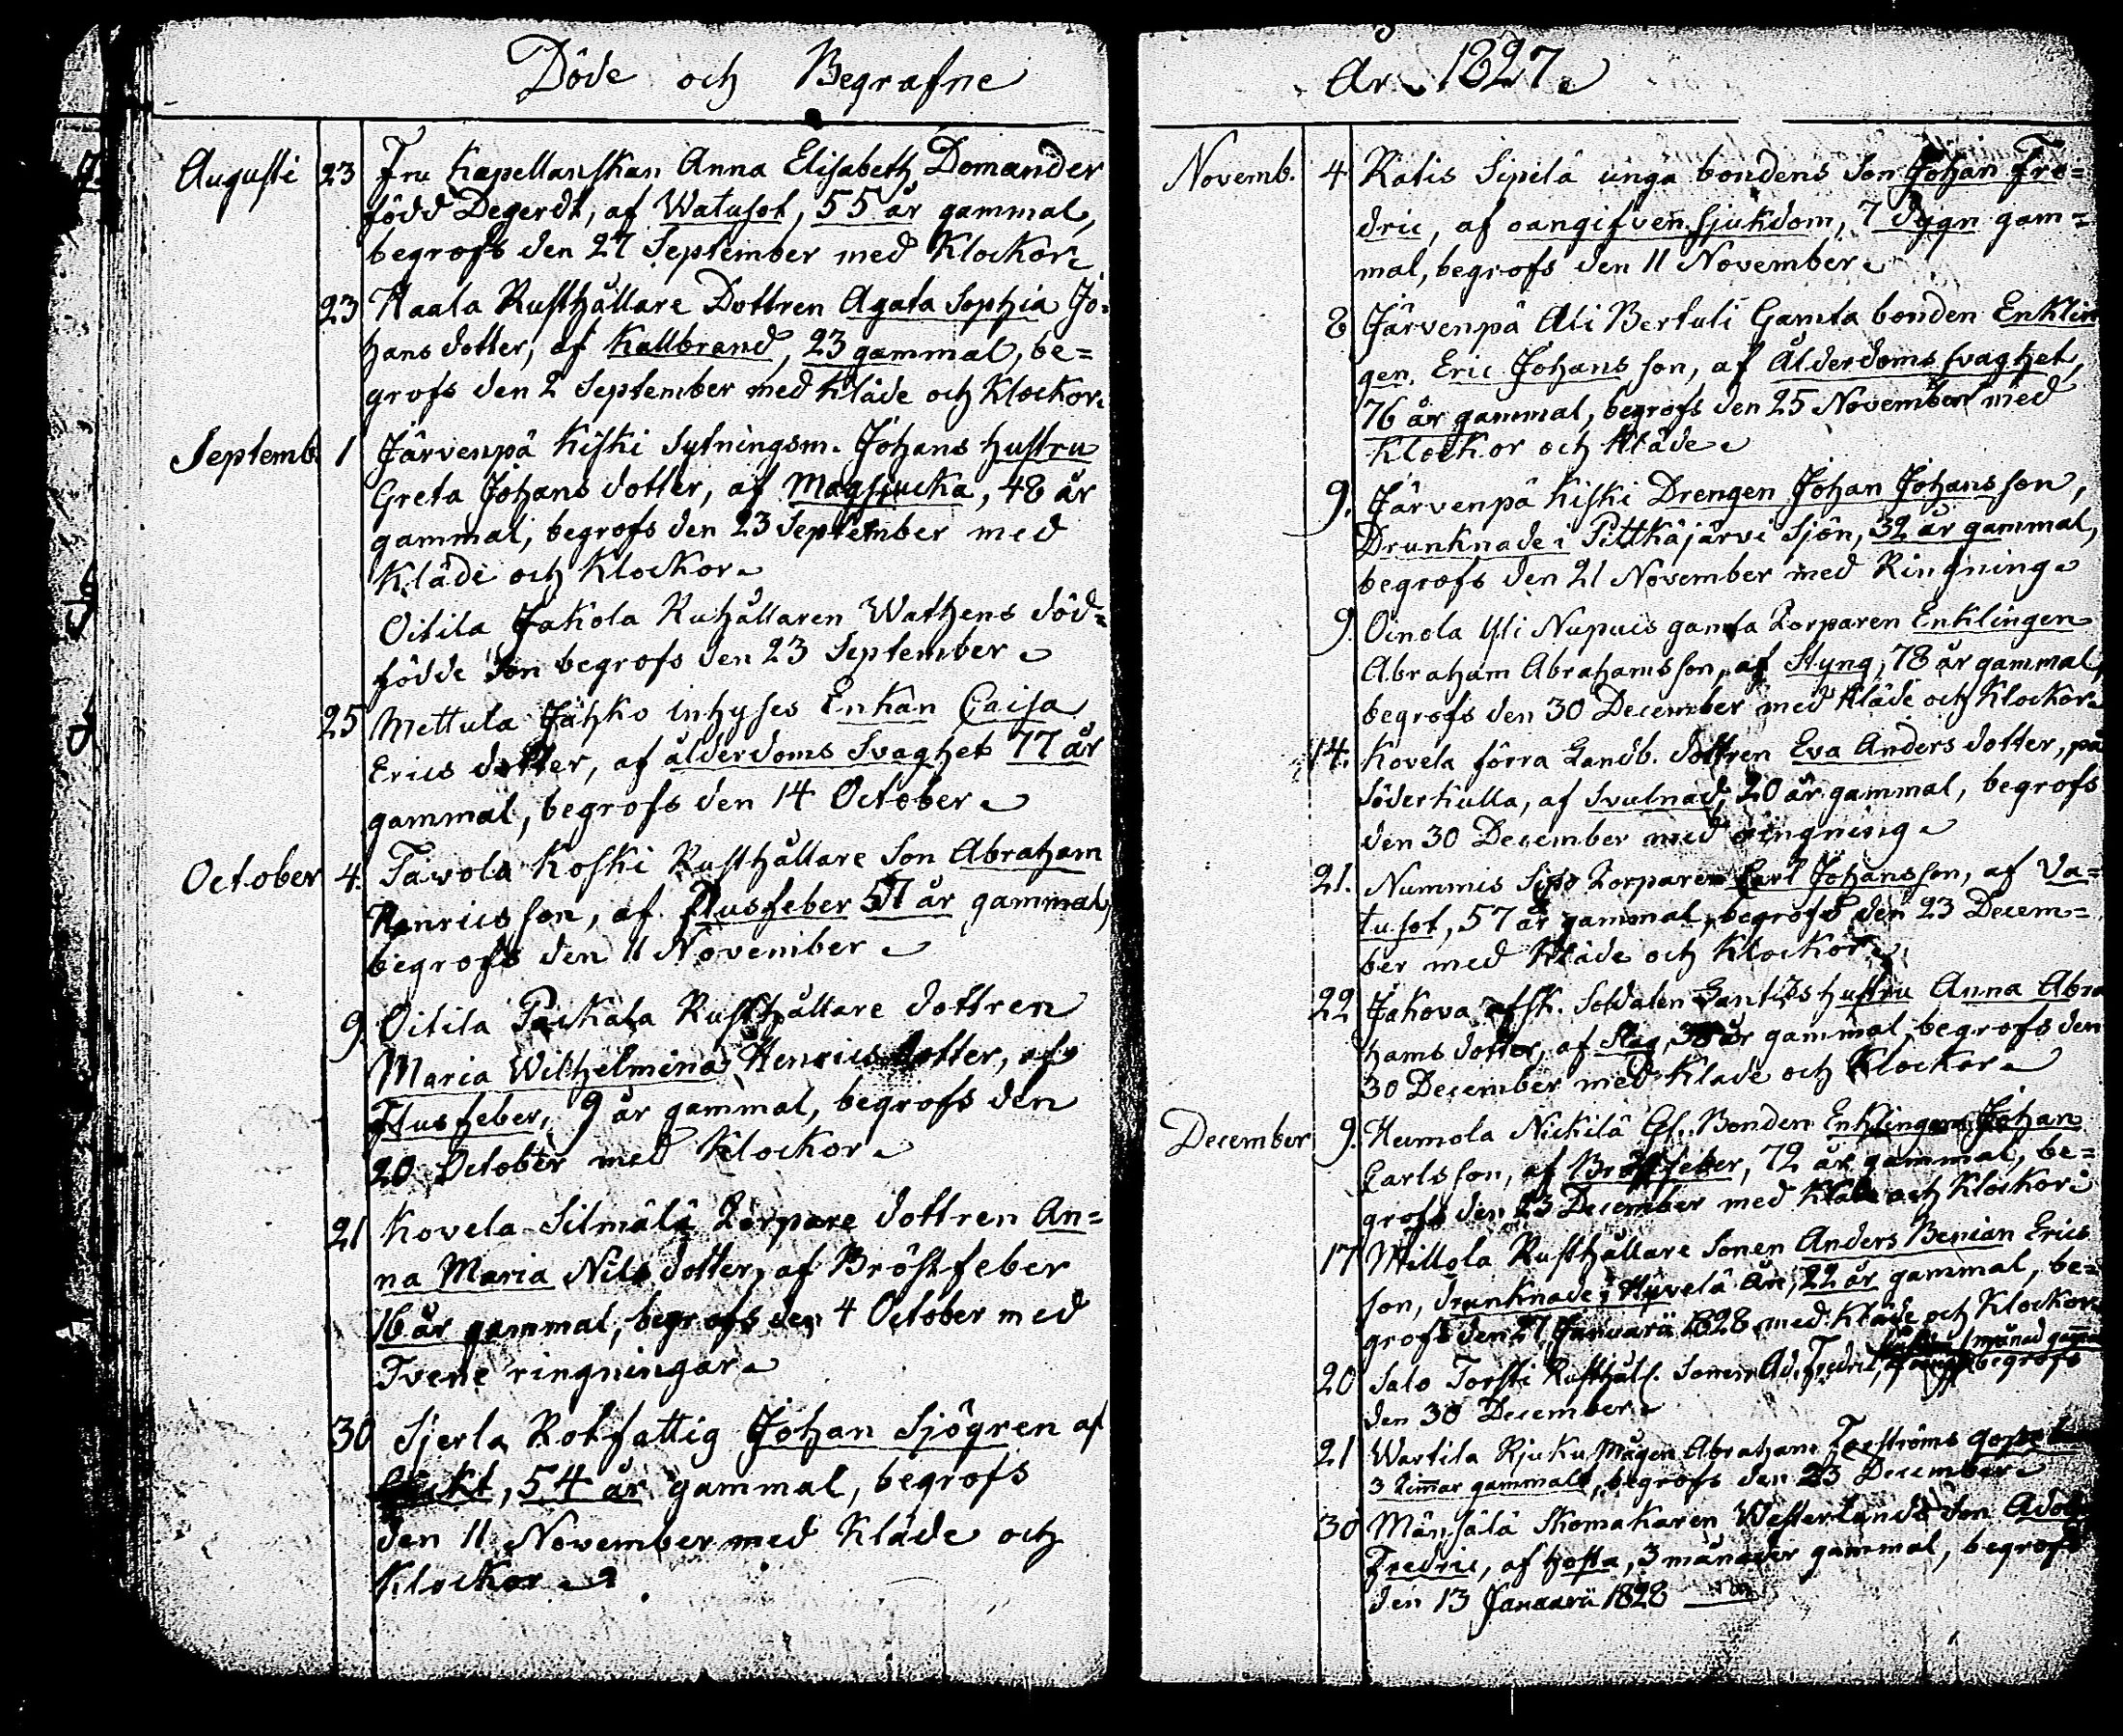 Döde och Begrafne
Augusti 23 Fru Kapellanskan Anna Elisabeth Domander
född Degerdt, af Watusot, 55 år gammal,
begrofs den 27 September med Klockor.
23 Haala Rusthållare Dottren Agata Sophia Jo=
hans dotter, af Kallbrand, 23 gammal, be=
grofs den 2 September med Kläde och Klockor.
Septemb. 1 Järvenpä Kiski Sytningsm. Johans hustru
Greta Johans dotter, af Magsjucka, 48 år
gammal, begrofs den 23 September med
Kläde och Klockor.
Oitila Jakola Ruhållaren Wathens död=
födde Son begrofs den 23 September.
25 Mettula Jähko inhyses Enkan Caisa
Erics dotter, af ålderdoms Svaghet 77 år
gammal, begrofs den 14 October.
October 4. Tavola Koski Rusthållare Son Abraham
Henricsson, af Flusfeber 57 år gammal,
begrofs den 11 November.
9. Oitila Packala Rusthållare dottren
Maria Wilhelmina Henrics dotter, af
Flusfeber, 9 år gammal, begrofs den
20 October med Klockor.
21 Kovela Silmälä Torpare dottren An=
na Maria Nils dotter, af Bröstfeber
16 år gammal, begrofs den 4 October med
Tvene ringningar.
30 Sjerla Rotfattig Johan Sjögren af
54 år gammal, begrofs
den 11 November med Kläde och
Klockor.
År 1827.
Novemb. 4 Ratis Sipilä unga bondens Son Johan Fre=
dric, af oangifven sjukdom, 7 dygn gam=
mal, begrofs den 11 November.
8 Järvenpä Ali Bertuli Gamla bonden Enklin
gen. Eric Johansson, af Ålderdoms svaghet,
76 år gammal, begrofs den 25 November med
Klockor och Kläde.
9. Järvenpä Kiski Drengen Johan Johansson,
Drunknade i Pittkäjärvi Sjön, 32 år gammal,
begrofs den 21 November med Ringning.
9. Oinola Yli Nupuis gamla Torparen Enklingen
Abraham Abrahamsson, af Styng, 78 år gammal,
begrofs den 30 December med Kläde och Klockor.
14. Kovela förra Landb. dottren Eva Anders dotter, på
Söderkulla, af Svulnad, 20 år gammal, begrofs
den 30 December med ringning.
21. Nummis Sipo Torparen Carl Johansson, af Va=
tusot, 57 år gammal, begrofs den 23 Decem=
ber med Kläde och Klockor.
22 Jakova afsk. Soldaten Hustru Anna Abra
hams dotter, af Slag, 38 år gammal, begrofs den
30 December med Kläde och Klockor.
December 9. Heimola Nickilä Bonden Enklingen Johan
Carlsson, af Bröstfeber, 72 år gammal, be=
grofs den 23 December med Kläde och Klockor.
17 Millola Rusthållare Sonen Anders Benian Erics
son, drunknade i Hyvelä Ån, 22 år gammal, be=
grofs den 27 Januarii 1828 med Kläde och Klockor.
20 Salo Torsti Rusthåll. Sonen Ad. Fredric, 1 månad gammal begrofs
den 30 December.
21 Wartila Rjuku Mågen Abraham Forströms
3 timmar gammalt, begrofs den 23 December.
30 Männsälä Skomakaren Westerlunds Son Adolf
Fredric, af hosta, 3 månader gammal, begrofs
den 13 Januarii 1828